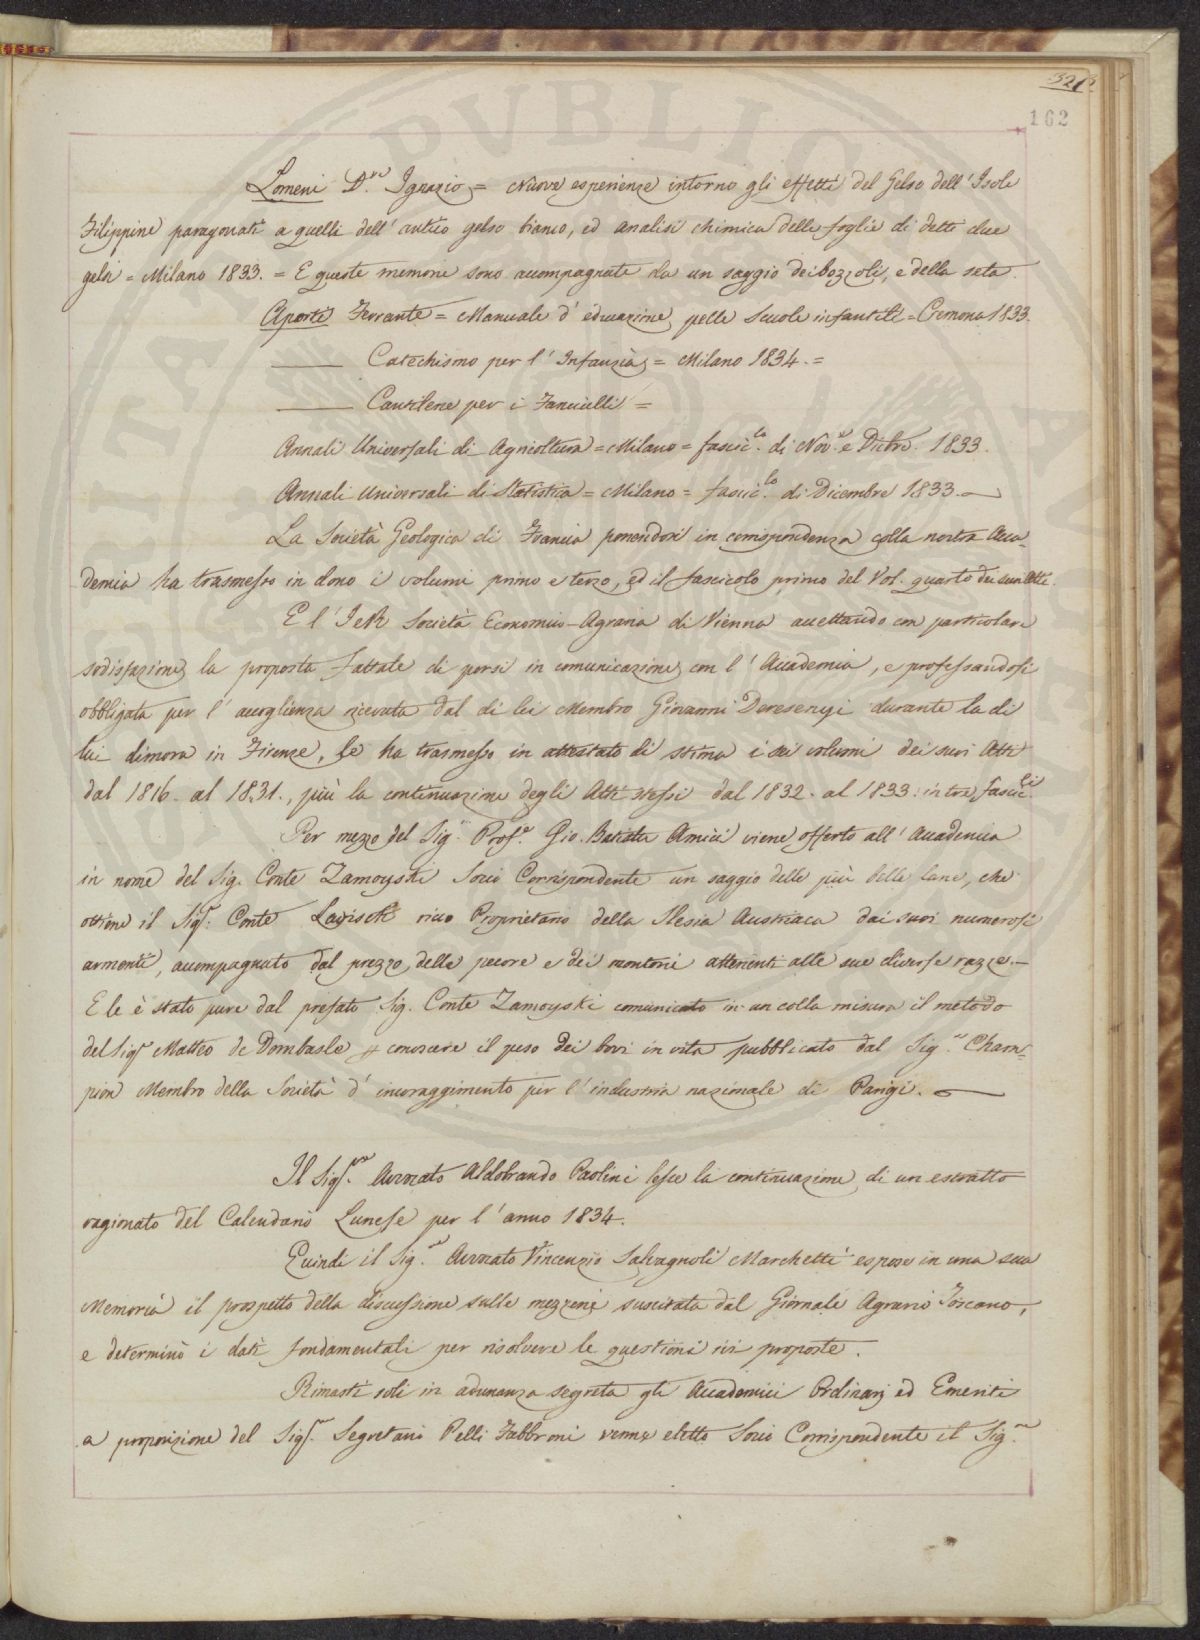 162
Lomeni D.re Ignazio = Nuove esperienze intorno gli effetti del Gelso dell' Isole
Filippine paragonati a quelli dell' antico gelso bianco, ed analisi chimica delle foglie di detti due
gelsi = Milano 1833. = E queste memorie sono accompagnate da un saggio dei bozzoli, e della seta.
Aporti Ferrante = Manuale d' educazione pelle Scuole infantili = Cremona 1833.
——— Catechismo per l' Infanzia = Milano 1834. =
——— Cantilene per i Fanciulli =
Annali Universali di Agricoltura = Milano = fascic.lo di Nov.e e Dicbre. 1833.
Annali Universali di Statistica = Milano = fascic.lo di Dicembre 1833. —
La Società Geologica di Francia ponendosi in corrispondenza colla nostra Acca-
demia ha trasmesso in dono i volumi primo e terzo, ed il fascicolo primo del Vol. quarto dei suoi Atti.
E l' I e R Società Economico-Agraria di Vienna accettando con particolare
sodisfazione la proposta fattale di porsi in comunicazione con l' Accademia, e professandosi
obbligata per l' accoglienza ricevuta dal di lei Membro Giovanni Deresenyi durante la di
lui dimora in Firenze, le ha trasmesso in attestato di stima i sei volumi dei suoi Atti
dal 1816. al 1831., più la continuazione degli Atti stessi dal 1832. al 1833. in tre fascic.li
Per mezzo del Sig.r Prof.e Gio. Batista Amici viene offerto all' Accademia
in nome del Sig. Conte Zamoyski Socio Corrispondente un saggio delle più belle lane, che
ottiene il Sig.r Conte ricco Proprietario della Slesia Austriaca dai suoi numerosi
armenti, accompagnato dal prezzo delle pecore e dei montoni attenenti alle sue diverse razze. —
E le è stato pure dal prefato Sig. Conte Zamoyski comunicato in un colla misura il metodo
del Sig.r Matteo de Dombasle p conoscere il peso dei bovi in vita pubblicato dal Sig.r Cham-
pion Membro della Società d' incoraggimento per l' industria nazionale di Parigi. —
Il Sig.re Avvocato Aldobrando Paolini lesse la continuazione di un estratto
ragionato del Calendario Lunese per l' anno 1834.
Quindi il Sig.r Avvocato Vincenzio Salvagnoli Marchetti espose in una sua
Memoria il prospetto della discussione sulle mezzerie suscitata dal Giornale Agrario Toscano,
e determinò i dati fondamentali per risolvere le questioni ivi proposte.
Rimasti soli in adunanza segreta gli Accademici Ordinarj ed Emeriti
a proposizione del Sig.r Segretario Pelli Fabbroni venne eletto Socio Corrispondente il Sig.re